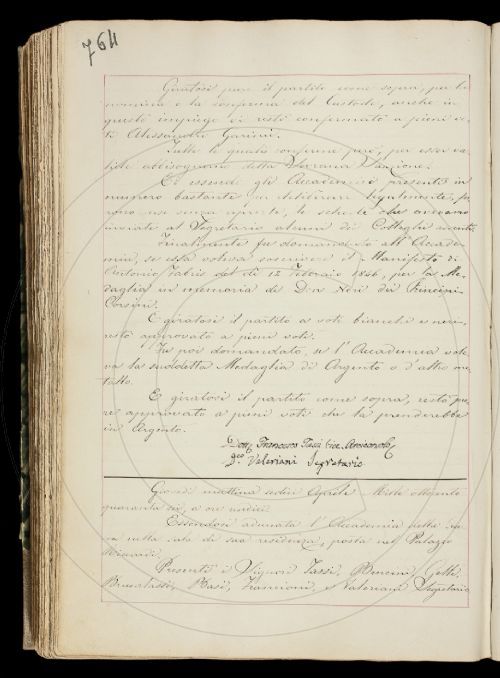 764
Giratosi pure il partito come sopra, per la
nomina o la conferma del Custode, anche in
questo impiego ei restò confermato a pieni vo=
ti Alessandro Garinei.
Tutte le quali conferme però, per esser va=
lide abbisognano della Sovrana Sanzione.
Ed essendo gli Accademici presenti in
numero bastante per deliberare legalmente, fu=
rono senza aprirsi, le schede che avevano
inviate al Segretario alcuni dei Colleghi assenti.
Finalmente fu domandato all'Accade=
mia, se essa voleva soscrivere il Manifesto di
Antonio Fabris del dì 12 Febbraio 1846, per la Me=
daglia in memoria di Don Neri dei Principi
Corsini.
E giratosi il partito a voti bianchi e neri,
restò approvato a pieni voti.
Fu poi domandato, se l'Accademia vole=
va la suddetta Medaglia di Argento o d'altro me=
tallo.
E giratosi il partito come sopra, restò pu=
re approvato a pieni voti che la prenderebbe
in Argento.
Dott. Francesco Tassi Vice Arciconsolo
Valeriani Segretario
Giovedì mattina sedici Aprile Mille ottocento
quaranta sei, a ore undici
Essendosi adunata l'Accademia nella
nella sala di sua residenza, posta nel Palazzo
Riccardi.
Presenti i Signori Tassi, Bencini, Gelli,
Brucalassi, Basi, Franscioni, e Valeriani Segretario